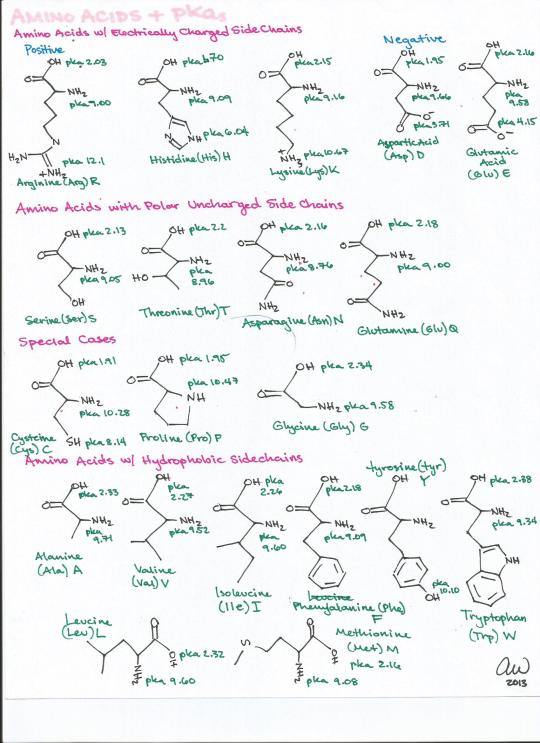 AMINO ACIDS + pKas
Amino Acids w/ Electrically Charged Side Chains
Positive
Negative
OH pka 2.03
O
NH2
pka 9.00
N
H2N
pka 12.1
+NH2
Arginine (Arg) R
OH
O
NH2
pka 9.09
N
NH pka 6.04
Histidine (His) H
OH pka 2.15
O
NH2
pka 9.16
+
NH3 pka 10.67
Lysine (Lys) K
OH pka 1.95
O
NH2
pka 9.66
O-
pka 3.71
O
Aspartic Acid
(Asp) D
OH pka 2.16
O
NH2
pka
9.58
pka 4.15
O
O-
Glutamic
Acid
(Glu) E
Amino Acids with Polar Uncharged Side Chains
OH pka 2.13
O
NH2
pka 9.05
OH
Serine (Ser) S
OH pka 2.2
O
NH2
pka
8.96
HO
Threonine (Thr) T
OH pka 2.16
O
NH2
pka 8.76
O
NH2
Asparagine (Asn) N
OH pka 2.18
O
NH2
pka 9.00
O
NH2
Glutamine (Glu) Q
Special Cases
OH pka 1.91
O
NH2
pka 10.28
SH pka 8.14
Cysteine
(Cys) C
OH pka 1.95
O
pka 10.47
NH
Proline (Pro) P
OH pka 2.34
O
NH2 pka 9.58
Glycine (Gly) G
Amino Acids w/ Hydrophobic Sidechains
OH
pka 2.33
O
NH2
pka
9.71
Alanine
(Ala) A
OH
pka
2.27
O
NH2
pka 9.52
Valine
(Val) V
OH pka
2.26
O
NH2
pka
9.60
Isoleucine
(Ile) I
OH
pka 2.18
O
NH2
pka 9.09
Leucine
Phenylalanine (Phe)
F
tyrosine (tyr)
Y
OH
O
NH2
pka
10.10
OH
OH pka 2.38
O
NH2
pka
9.34
NH
Tryptophan
(Trp) W
Leucine
(Leu) L
O
OH
pka 2.32
NH2
pka 9.60
S
O
OH
NH2
pka 9.08
Methionine
(Met) M
pka 2.16
2013